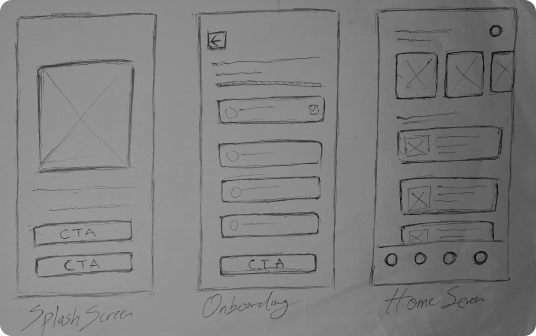 CTA
CTA
Splash Screen
CTA
Onboarding
Home Screen